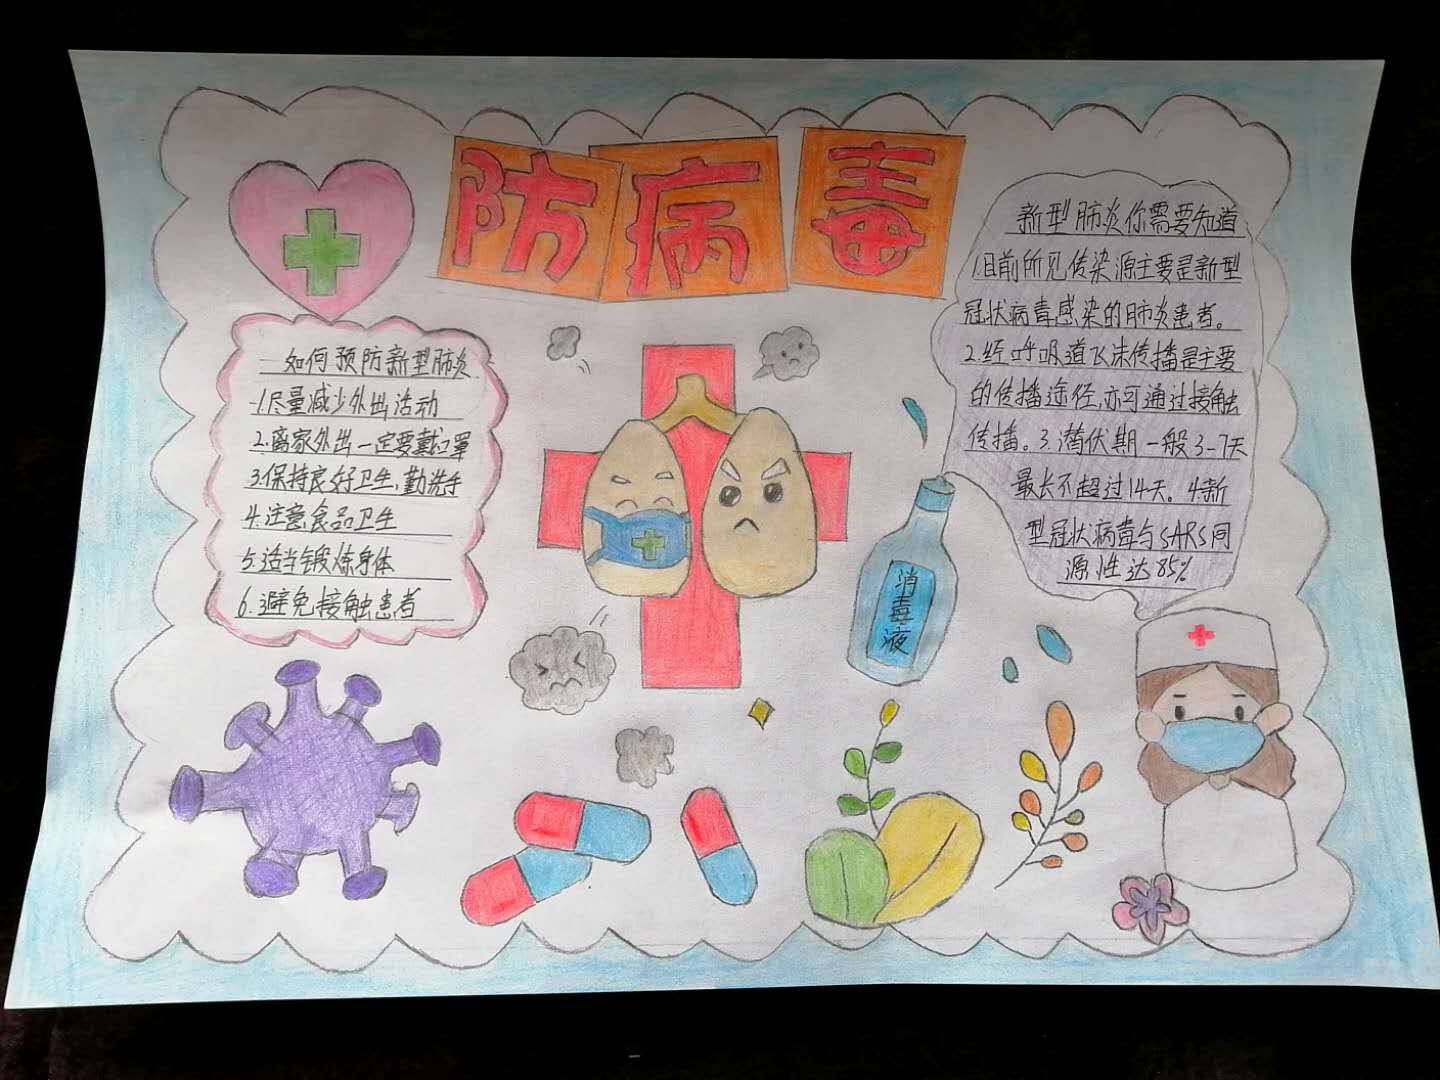 防病毒
如何预防新型肺炎
1.尽量减少外出活动
2.离家外出一定要戴口罩
3.保持良好卫生,勤洗手
4.注意食品卫生
5.适当锻炼身体
6.避免接触患者
新型肺炎你需要知道
1.目前所见传染源主要是新型
冠状病毒感染的肺炎患者。
2.经呼吸道飞沫传播是主要
的传播途径,亦可通过接触
传播。3.潜伏期一般3-7天
最长不超过14天。4.新
型冠状病毒与SARS同
源性达85%
消毒液